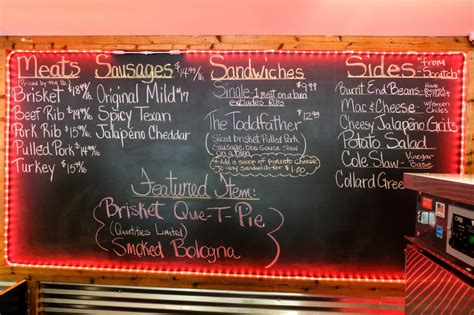 Meats
(Priced by the lb.)
Brisket $18.99/lb.
Beef Rib $19.99/lb.
Pork Rib $15.99/lb.
Pulled Pork $14.99/lb.
Turkey $15.99/lb.
Sausages $14.99/lb.
Original Mild
Spicy Texan
Jalapeño Cheddar
Sandwiches
Single: 1 meat on a bun $9.99
excludes Ribs
The Toddfather
Sliced brisket, Pulled Pork,
Sausage, bbq sauce, slaw
on a bun
Add a scoop of pimento cheese
to any sandwich for $1.00
Sides "from Scratch"
Burnt End Beans
Mac & Cheese
Cheesy Jalapeño Grits
Potato Salad
Cole Slaw - Vinegar Base
Collard Greens
Featured Item:
Brisket Que-T-Pie
(Quantities Limited)
Smoked Bologna